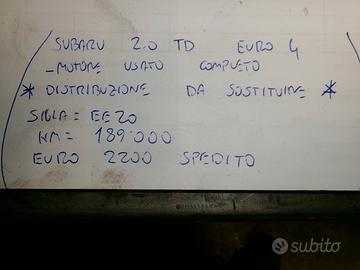 SUBARU 2.0 TD EURO 4
- MOTORE USATO COMPLETO
* DISTRIBUZIONE DA SOSTITUIRE *
SIGLA = EE20
KM = 189.000
EURO 2200 SPEDITO
subito